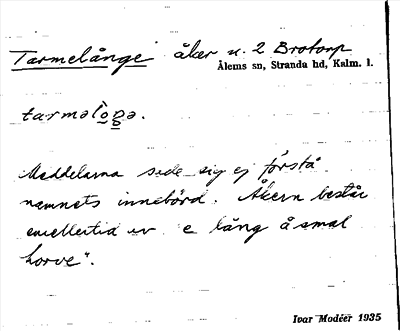 Tarmelånge åker n. 2 Brotorp
Ålems sn, Stranda hd, Kalm. l.
tarməlo̠g̠ə.
Meddelarna sade sig ej förstå
namnets innebörd. Åkern består
emellertid av "e lång å smal
horve".
Ivar Modéer 1935